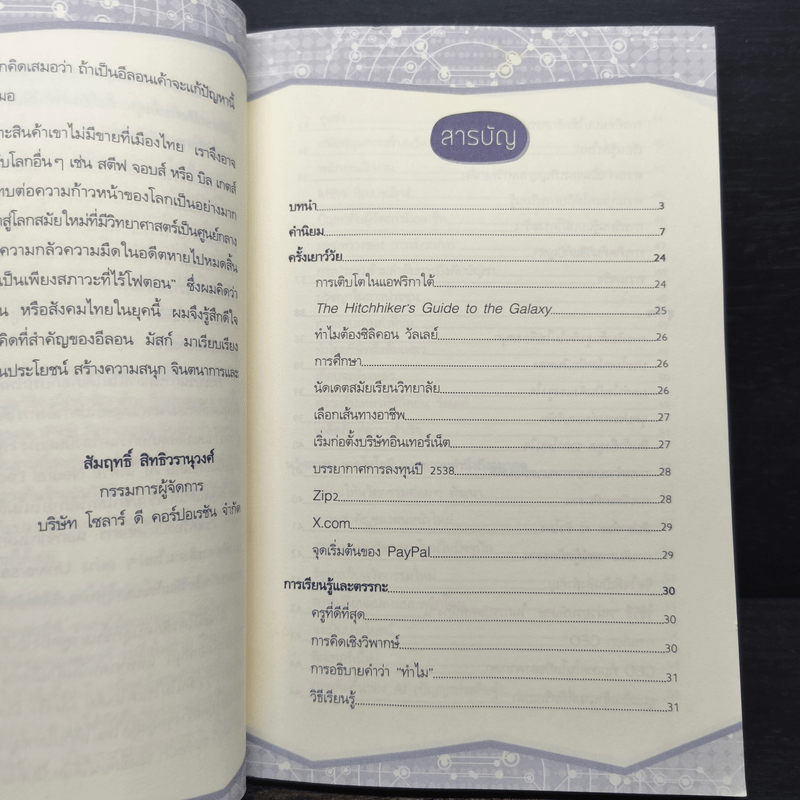 กคิดเสมอว่า ถ้าเป็นอีลอนเค้าจะแก้ปัญหานี้
มอ
าะสินค้าเขาไม่มีขายที่เมืองไทย เราจึงอาจ
ับโลกอื่นๆ เช่น สตีฟ จอบส์ หรือ บิล เกตส์
ทบต่อความก้าวหน้าของโลกเป็นอย่างมาก
าสู่โลกสมัยใหม่ที่มีวิทยาศาสตร์เป็นศูนย์กลาง
ความกลัวความมืดในอดีตหายไปหมดสิ้น
เป็นเพียงสภาวะที่ไร้โฟตอน" ซึ่งผมคิดว่า
น หรือสังคมไทยในยุคนี้ ผมจึงรู้สึกดีใจ
คิดที่สำคัญของอีลอน มัสก์ มาเรียบเรียง
นประโยชน์ สร้างความสนุก จินตนาการและ
สัมฤทธิ์ สิทธิวรานุวงศ์
กรรมการผู้จัดการ
บริษัท โซลาร์ ดี คอร์ปอเรชัน จำกัด
สารบัญ
บทนำ 3
คำนิยม 7
ครั้งเยาว์วัย 24
การเติบโตในแอฟริกาใต้ 24
The Hitchhiker's Guide to the Galaxy 25
ทำไมต้องซิลิคอน วัลเลย์ 26
การศึกษา 26
นัดเดตสมัยเรียนวิทยาลัย 26
เลือกเส้นทางอาชีพ 27
เริ่มก่อตั้งบริษัทอินเทอร์เน็ต 27
บรรยากาศการลงทุนปี 2538 28
Zip2 28
X.com 29
จุดเริ่มต้นของ PayPal 29
การเรียนรู้และตรรกะ 30
ครูที่ดีที่สุด 30
การคิดเชิงวิพากษ์ 30
การอธิบายคำว่า "ทำไม" 31
วิธีเรียนรู้ 31